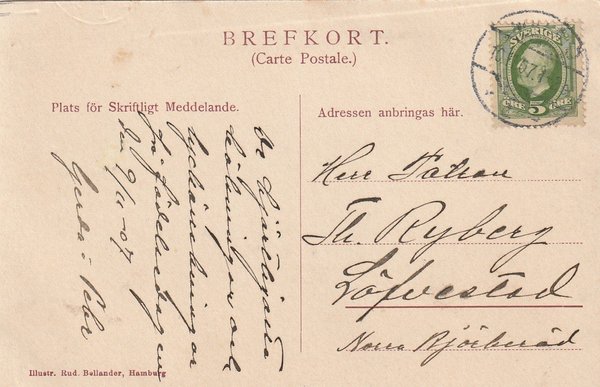 BREFKORT.
(Carte Postale.)
SVERIGE
ÖRE 5 ÖRE
Plats för Skriftligt Meddelande.
Adressen anbringas här.
De hjärtligaste
hälsningar och
lyckönskningar
på födelsedagen
den 9/11-07
Gerda o Pehr
Herr Patron
Th. Ryberg
Löfvestad
Norra Björkeröd
Illustr. Rud. Bellander, Hamburg